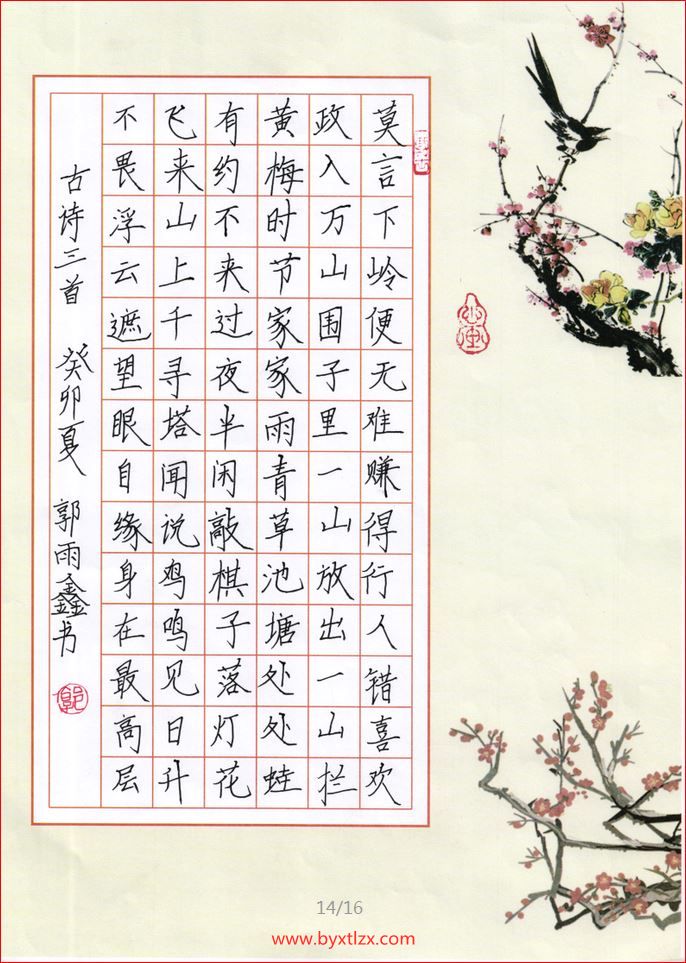 莫言下岭便无难赚得行人错喜欢
政入万山围子里一山放出一山拦
黄梅时节家家雨青草池塘处处蛙
有约不来过夜半闲敲棋子落灯花
飞来山上千寻塔闻说鸡鸣见日升
不畏浮云遮望眼自缘身在最高层
古诗三首 癸卯夏 郭雨鑫书
14/16
www.byxtlzx.com